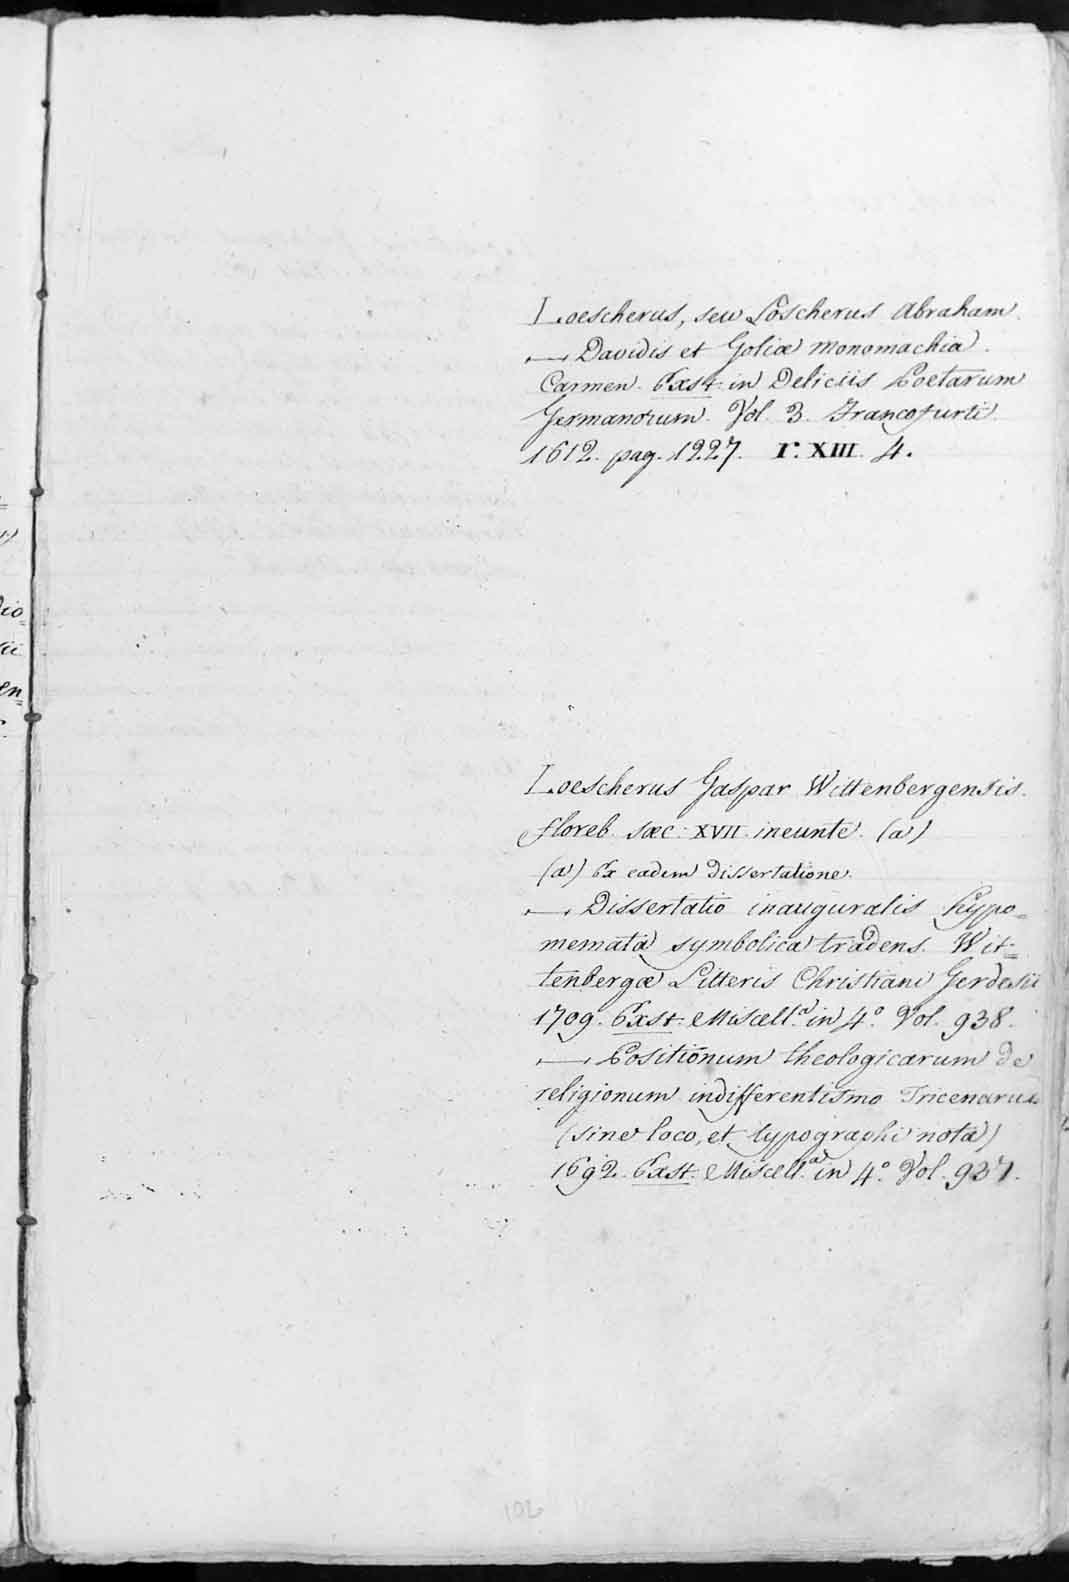 Loescherus, seu Löscherus Abraham
— Davidis et Goliæ monomachia.
Carmen. Exst. in Deliciis Poetarum
Germanorum. Vol. 3. Francofurti
1612. pag. 1227. Γ. XIII. 4.
Loescherus Gaspar Wittenbergensis.
floreb. sæc. XVII. ineunte. (a)
(a) Ex eadem dissertatione.
— Dissertatio inauguralis hypo=
memata symbolica tradens. Wit=
tenbergæ Litteris Christiani Gerdesii
1709. Exst. Miscell.ª in 4.º Vol. 938.
— Positionum theologicarum de
religionum indifferentismo Tricenarius
(sine loco, et typographi nota)
1692. Exst. Miscell.ª in 4.º Vol. 937.
102